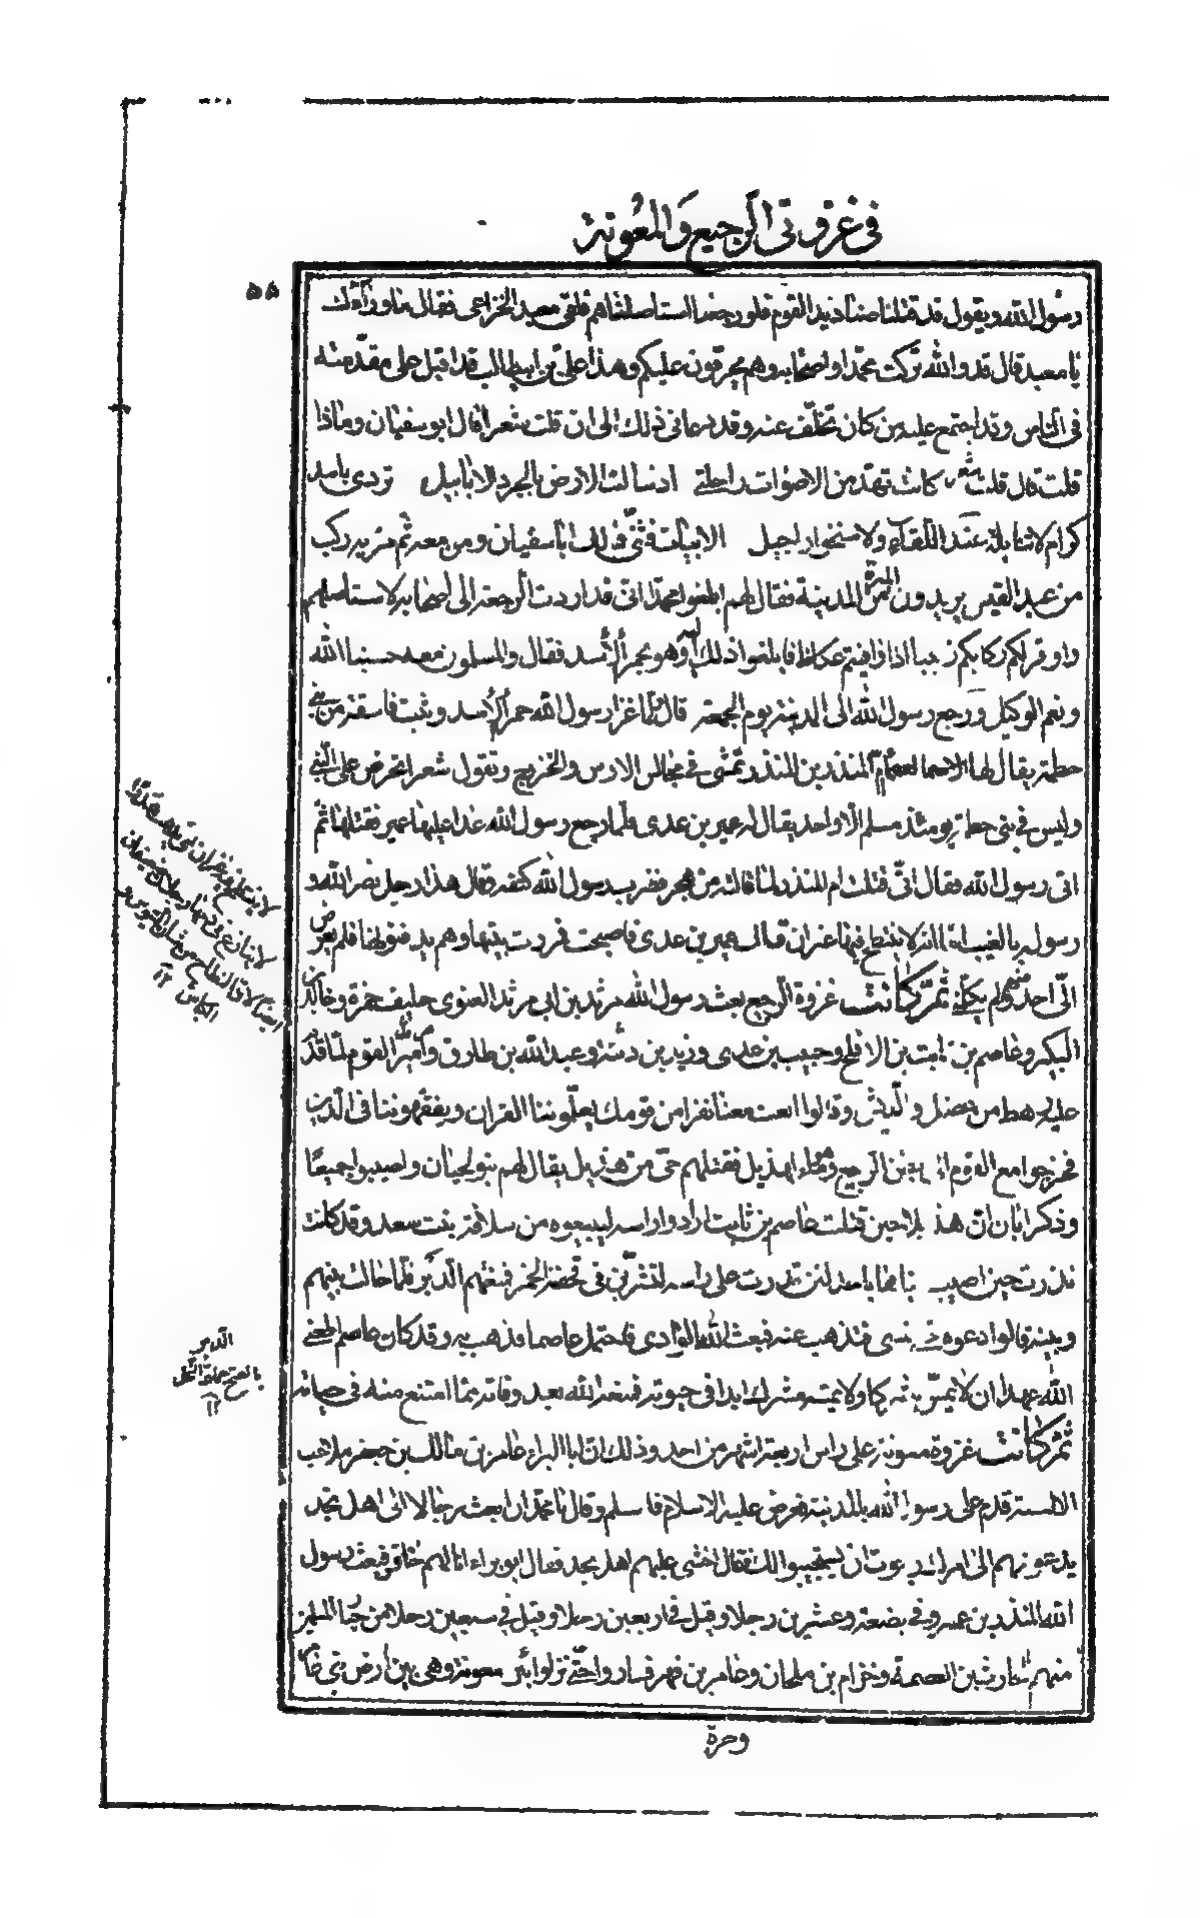 في غزوتى الرجيع والمعونة
٥٥
رسول الله ويقول قد قتلنا صناديد القوم فلو رجعنا استاصلناهم فلقى معبد الخزاعى فقال ما وراءك
يا معبد قال قد والله تركت محمدا واصحابه وهم يحرقون عليكم وهذا على بن ابيطالب قد اقبل على مقدمته
فى الناس وقد اجتمع عليه من كان تخلّف عنه وقد دعانى ذلك الى ان قلت شعرا قال ابو سفيان وماذا
قلت قال قلت شعر كادت تهدّ من الاصوات راحلتى اذ سالت الارض بالجرد الابابيل تردى باسد
كرام لا تنابلة عند اللقاء ولا معازيل الابيات فثنّى ذلك اباسفيان ومن معه ثم مرّ به ركب
من عبد القيس يريدون الميرة من المدينة فقال لهم ابلغوا محمدا انّى قد اردت الرجعة الى اصحابه لاستاصلهم
واوقر لكم ركابكم زبيبا اذا وافيتم عكاظ فابلغوا ذلك اليه وهو بحمراء الأسد فقال والمسلمون معه حسبنا الله
ونعم الوكيل ورجع رسول الله الى المدينة يوم الجمعة قال لمّا غزا رسول الله حمراء الأسد وثبت فاسقة من بنى
خطمة يقال لها العصماء ام المنذر بن المنذر تمشى فى مجالس الاوس والخزرج وتقول شعرا تحرض على النّبى
وليس فى بنى خطمة يومئذ مسلم الّا واحد يقال له عمير بن عدى فلما رجع رسول الله غدا عليها عمير فقتلها ثم
اتى رسول الله فقال انّى قتلت ام المنذر لما قالته من هجر فضرب رسول الله كتفه وقال هذا رجل نصر الله و
رسوله بالغيب اما انه لا ينتطح فيها عنزان قال عمير بن عدى فاصبحت فمررت ببنيها وهم يدفنونها فلم يعرض
الىّ احد منهم ولم يكلّمنى ثمّ كانت غزوة الرجيع بعث رسول الله مرثد بن ابى مرثد الغنوى حليف حمزة وخالد بن
البكير وعاصم بن ثابت بن الافلح وخبيب بن عدى وزيد بن دثنة وعبد الله بن طارق وامير القوم مرثد لمّا قدم
عليه رهط من عضل والديش وقالوا ابعث معنا نفرا من قومك يعلّموننا القران ويفقهوننا فى الدّين
فخرجوا مع القوم الى بطن الرجيع وهو ماء لهذيل فقتلهم حىّ من هذيل يقال لهم بنو لحيان واصيبوا جميعًا
وذكر ابان انّ هذيلا حين قتلت عاصم بن ثابت ارادوا راسه ليبيعوه من سلافة بنت سعد وقد كانت
نذرت حين اصيب ابناها باحد لئن قدرت على راسه لتشربنّ فى قحفه الخمر فمنعهم الدّبر فلمّا حالت بينهم
وبينه قالوا دعوه حتى نمسى فتذهب عنه فبعث الله الوادى فاحتمل عاصما فذهب به وقد كان عاصم اعطى
الله عهدا ان لا يمسّ مشركا ولا يمسه مشرك ابدا فى حيوته فمنعه الله بعد وفاته ممّا امتنع منه فى حياته
ثمّ كانت غزوة معونة على راس اربعة اشهر من احد وذلك انّ ابا البراء عامر بن مالك بن جعفر ملاعب
الاسنة قدم على رسول الله بالمدينة فعرض عليه الاسلام فاسلم وقال يا محمّد ان ابعث رجالا الى اهل نجد
يدعونهم الى امرك رجوت ان يستجيبوا لك فقال اخشى عليهم اهل نجد فقال ابو براء انا لهم جار فبعث رسول
الله المنذر بن عمرو فى بضعة وعشرين رجلا وقيل فى اربعين رجلا وقيل فى سبعين رجلا من خيار المسلمين
منهم الحارث بن الصمة وحزام بن ملحان وعامر بن فهر فساروا حتّى نزلوا بئر معونة وهى بين ارض بنى عامر
وحرة
الدبر
بالفتح جماعة النحل
١٢